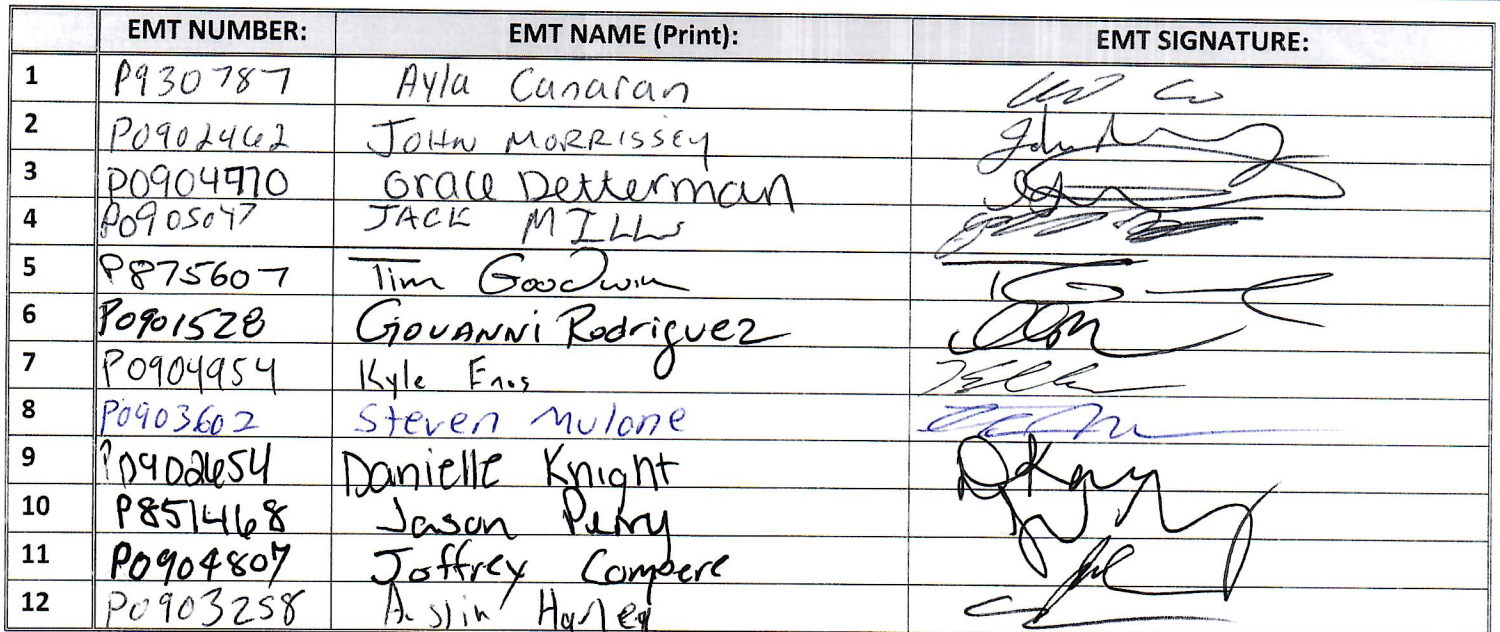 EMT NUMBER: EMT NAME (Print): EMT SIGNATURE:
1 P930787 Ayla Canaran
2 P0902462 JOHN MORRISSEY
3 P0904970 Grace Detterman
4 P0905047 JACK MILLS
5 P875607 Tim Goodwin
6 P0901528 GiovANNi Rodriguez
7 P0904954 Kyle Enos
8 P0903602 Steven Mulone
9 P0902654 Danielle Knight
10 P851468 Jason Perry
11 P0904807 Joffrey Compere
12 P0903258 Austin